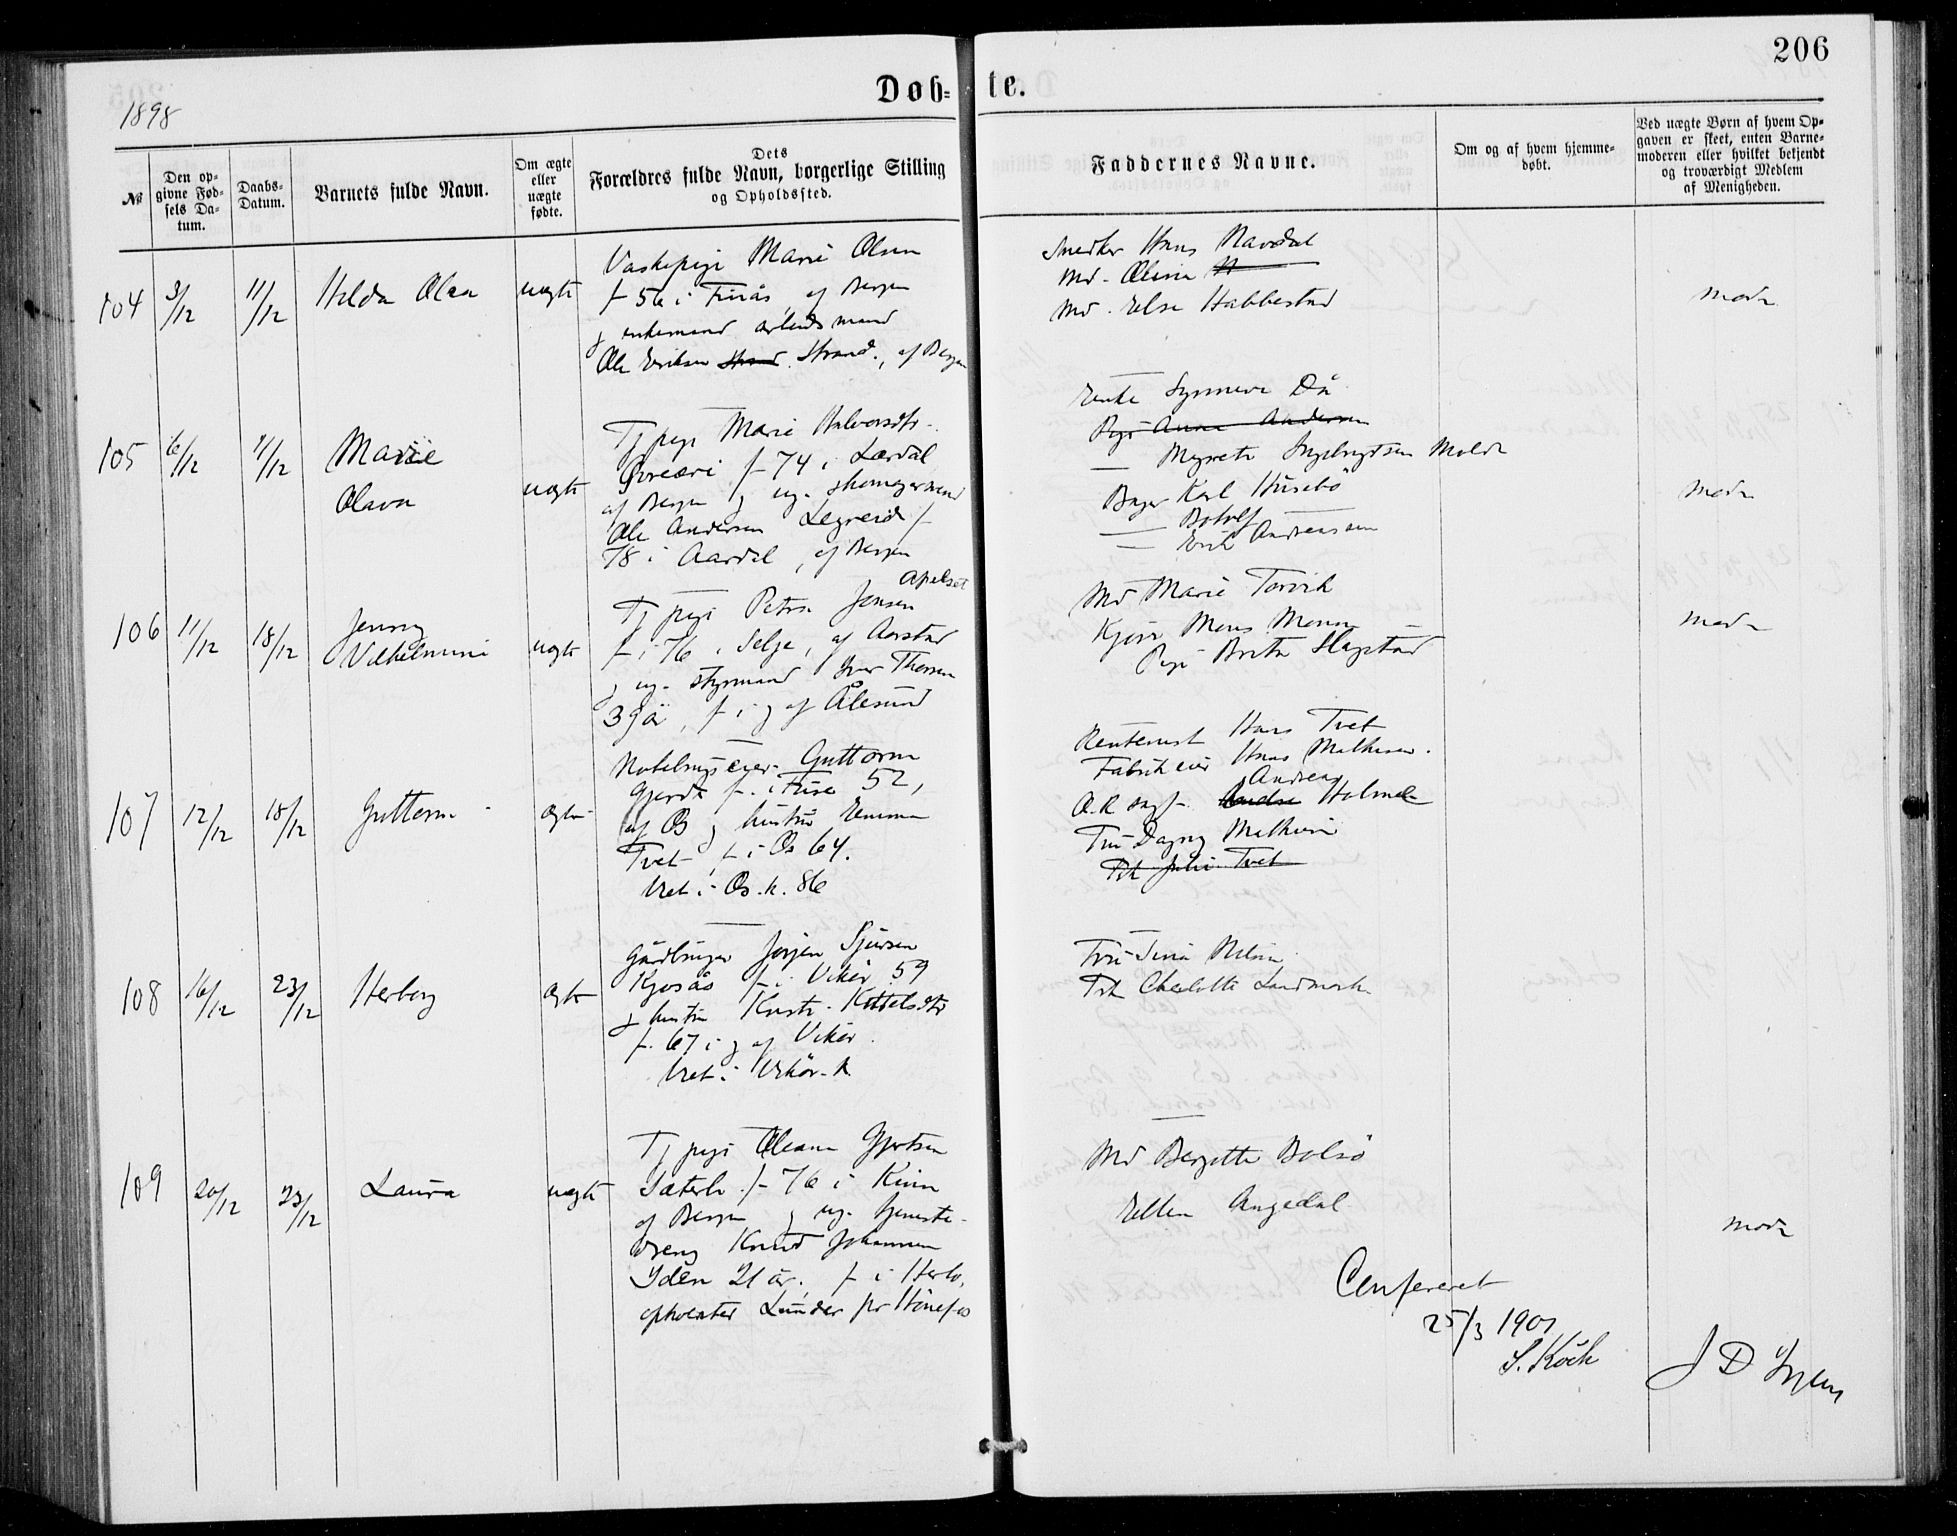 206
Døb-te.
1898
№
Den op-
givne Fød-
sels Da-
tum.
Daabs-
Datum.
Barnets fulde Navn.
Om ægte
eller
uægte
fødte.
Dets
Forældres fulde Navn, borgerlige Stilling
og Opholdssted.
Faddernes Navne.
Om og af hvem hjemme-
døbt.
Ved uægte Børn af hvem Op-
gaven er skeet, enten Barne-
moderen eller hvilket bekjendt
og troværdigt Medlem
af Menigheden.
104 3/12 11/12 Hilda Olea uægte
Vaskepige Marie Olsen
f 56 i Finås, af Bergen
og enkemand arbeidsmand
Ole Eriksen Strand., af Bergen
Snedker Hans Navdal
Md. Oline
Md. Else Habbestad
moder
105 6/12 11/12 Marie
Olava
uægte
Tj pige Marie Halvorsdtr.
f 74 i Lærdal
af Bergen og ug. skomagersvend
Ole Andersen Legreid f
78 i Aardal, af Bergen
Enke Synneve Då
Pige Anna Andersen
— Molde
Bager Karl Husebö
— Botolf
— Erik Andreassen
moder
106 11/12 18/12 Jenny
Vilhelmine
uægte
Apelset
Tj pige Petra Jensen
f i 76 i Selje, af Aarstad
og ug. styrmand Iver Thorsen
39 å, f i og af Ålesund
Md Marie Torvik
Kjörer Mons Monsen
Pige Brita Slagstad
moder
107 12/12 18/12 Guttorm ægte
Hotelbryseier Guttorm
Gjerde f. i Fuse 52,
af Os og hustru Emma
Tvet f i Os 64.
Viet i Os. k. 86
Rentenist Hans Tvet
Fabrikeier Hans Mathiesen.
O.R sagf. Andreas Holmek
Fru Dagny Mathiesen
Frk Julie Tvet
108 16/12 23/12 Herborg ægte
Gårdbruger Jörgen Sjursen
Kjosås f. i Vikör 59
og hustru Kristi Kittelsdtr
f. 67 i og af Vikör.
Viet i Vikör. k.
Fru Sina Nilsen
Frk Charlotte Landmark
109 20/12 23/12 Laura uægte
Tj pige Oleana Gjertsen
Sæterb. f 76 i Kinn
af Bergen og ug. tjeneste-
dreng Knud Johannesen
Ydlen 21 år, f i Herlo,
opholdsted Lunder pr Hönefos
Md Bergitte Bolsö
Ellen Angedal
moder
Confereret
25/3 1901
S. Koch